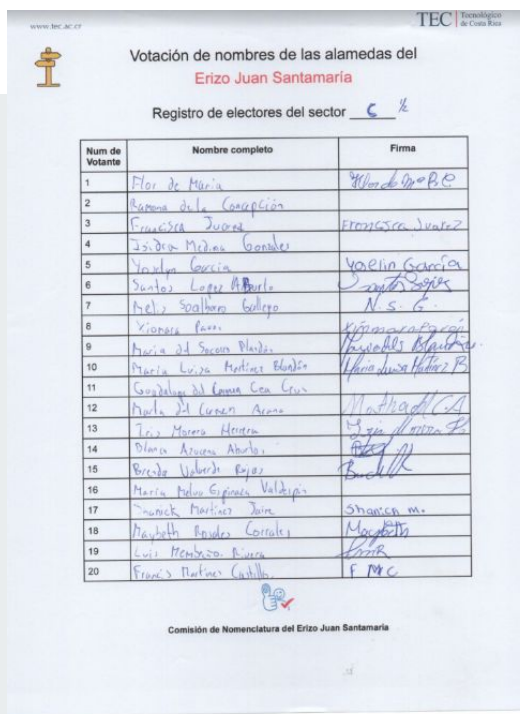 www.tec.ac.cr
TEC | Tecnológico de Costa Rica
Votación de nombres de las alamedas del
Erizo Juan Santamaría
Registro de electores del sector 6 1/2
Num de Votante Nombre completo Firma
1 Flor de María
2 Ramona de la Concepción
3 Francisca Juarez Francisca Juarez
4 Isidra Medina Gonzales
5 Yoselyn García Yoselin García
6 Santos Lopez Aburto Santos Lopez
7 Gallego N. S. G.
8 Xiomara
9 María del Socorro Blandón
10 María Luisa Martinez Blandón María Luisa Martinez B
11 Guadalupe del Carmen Cea Cruz
12 Marta del Carmen Arana
13 Iris Morera Herrera
14 Blanca Azucena Aburto
15 Brenda Valverde Rojas
16 María Espinoza Valdespin
17 Martinez Shanick m.
18 Maybeth Rosales Corrales Maybeth
19 Luis Membreño Rivera
20 Francis Martines Castillo F M C
Comisión de Nomenclatura del Erizo Juan Santamaria